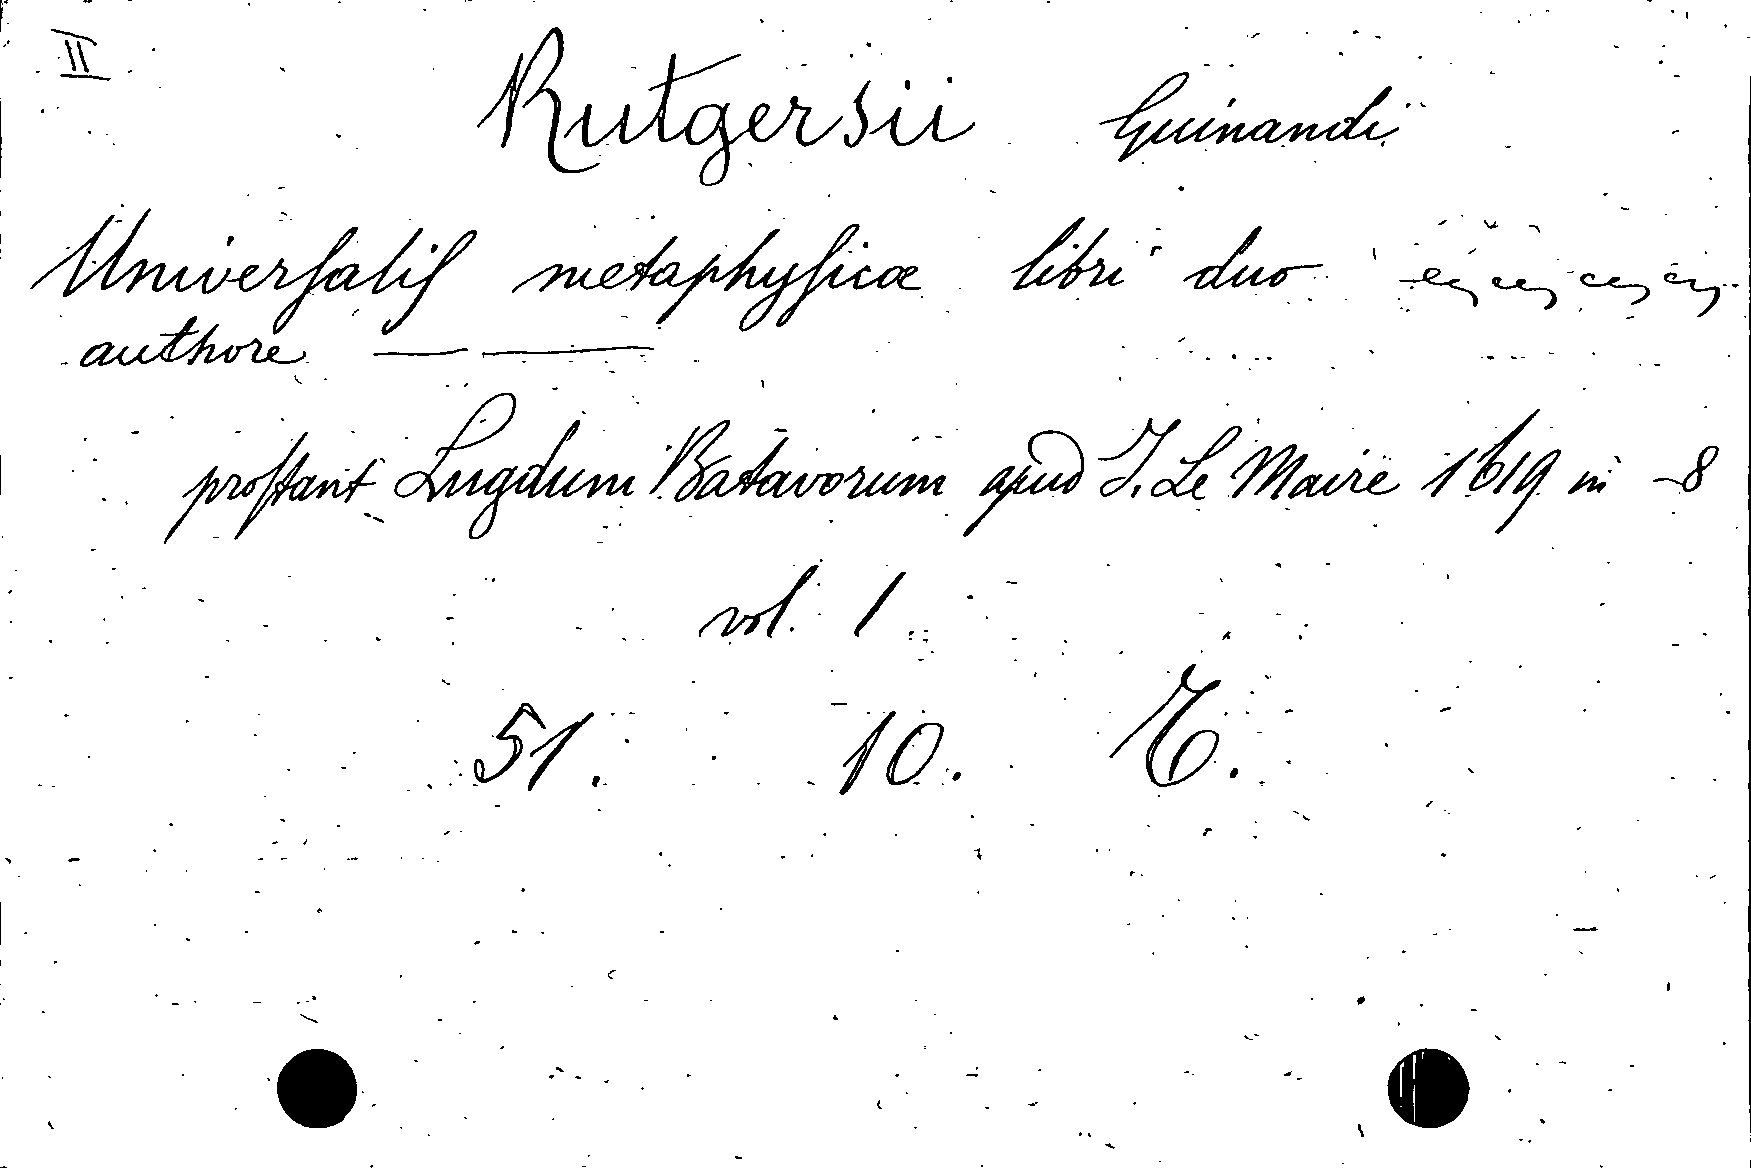 II
Rutgersii Guinandi
Universalis metaphysicæ libri duo
authore — —
prostant Lugduni Batavorum apud J. Le Maire 1619 in -8
vol. 1
51. 10. E.